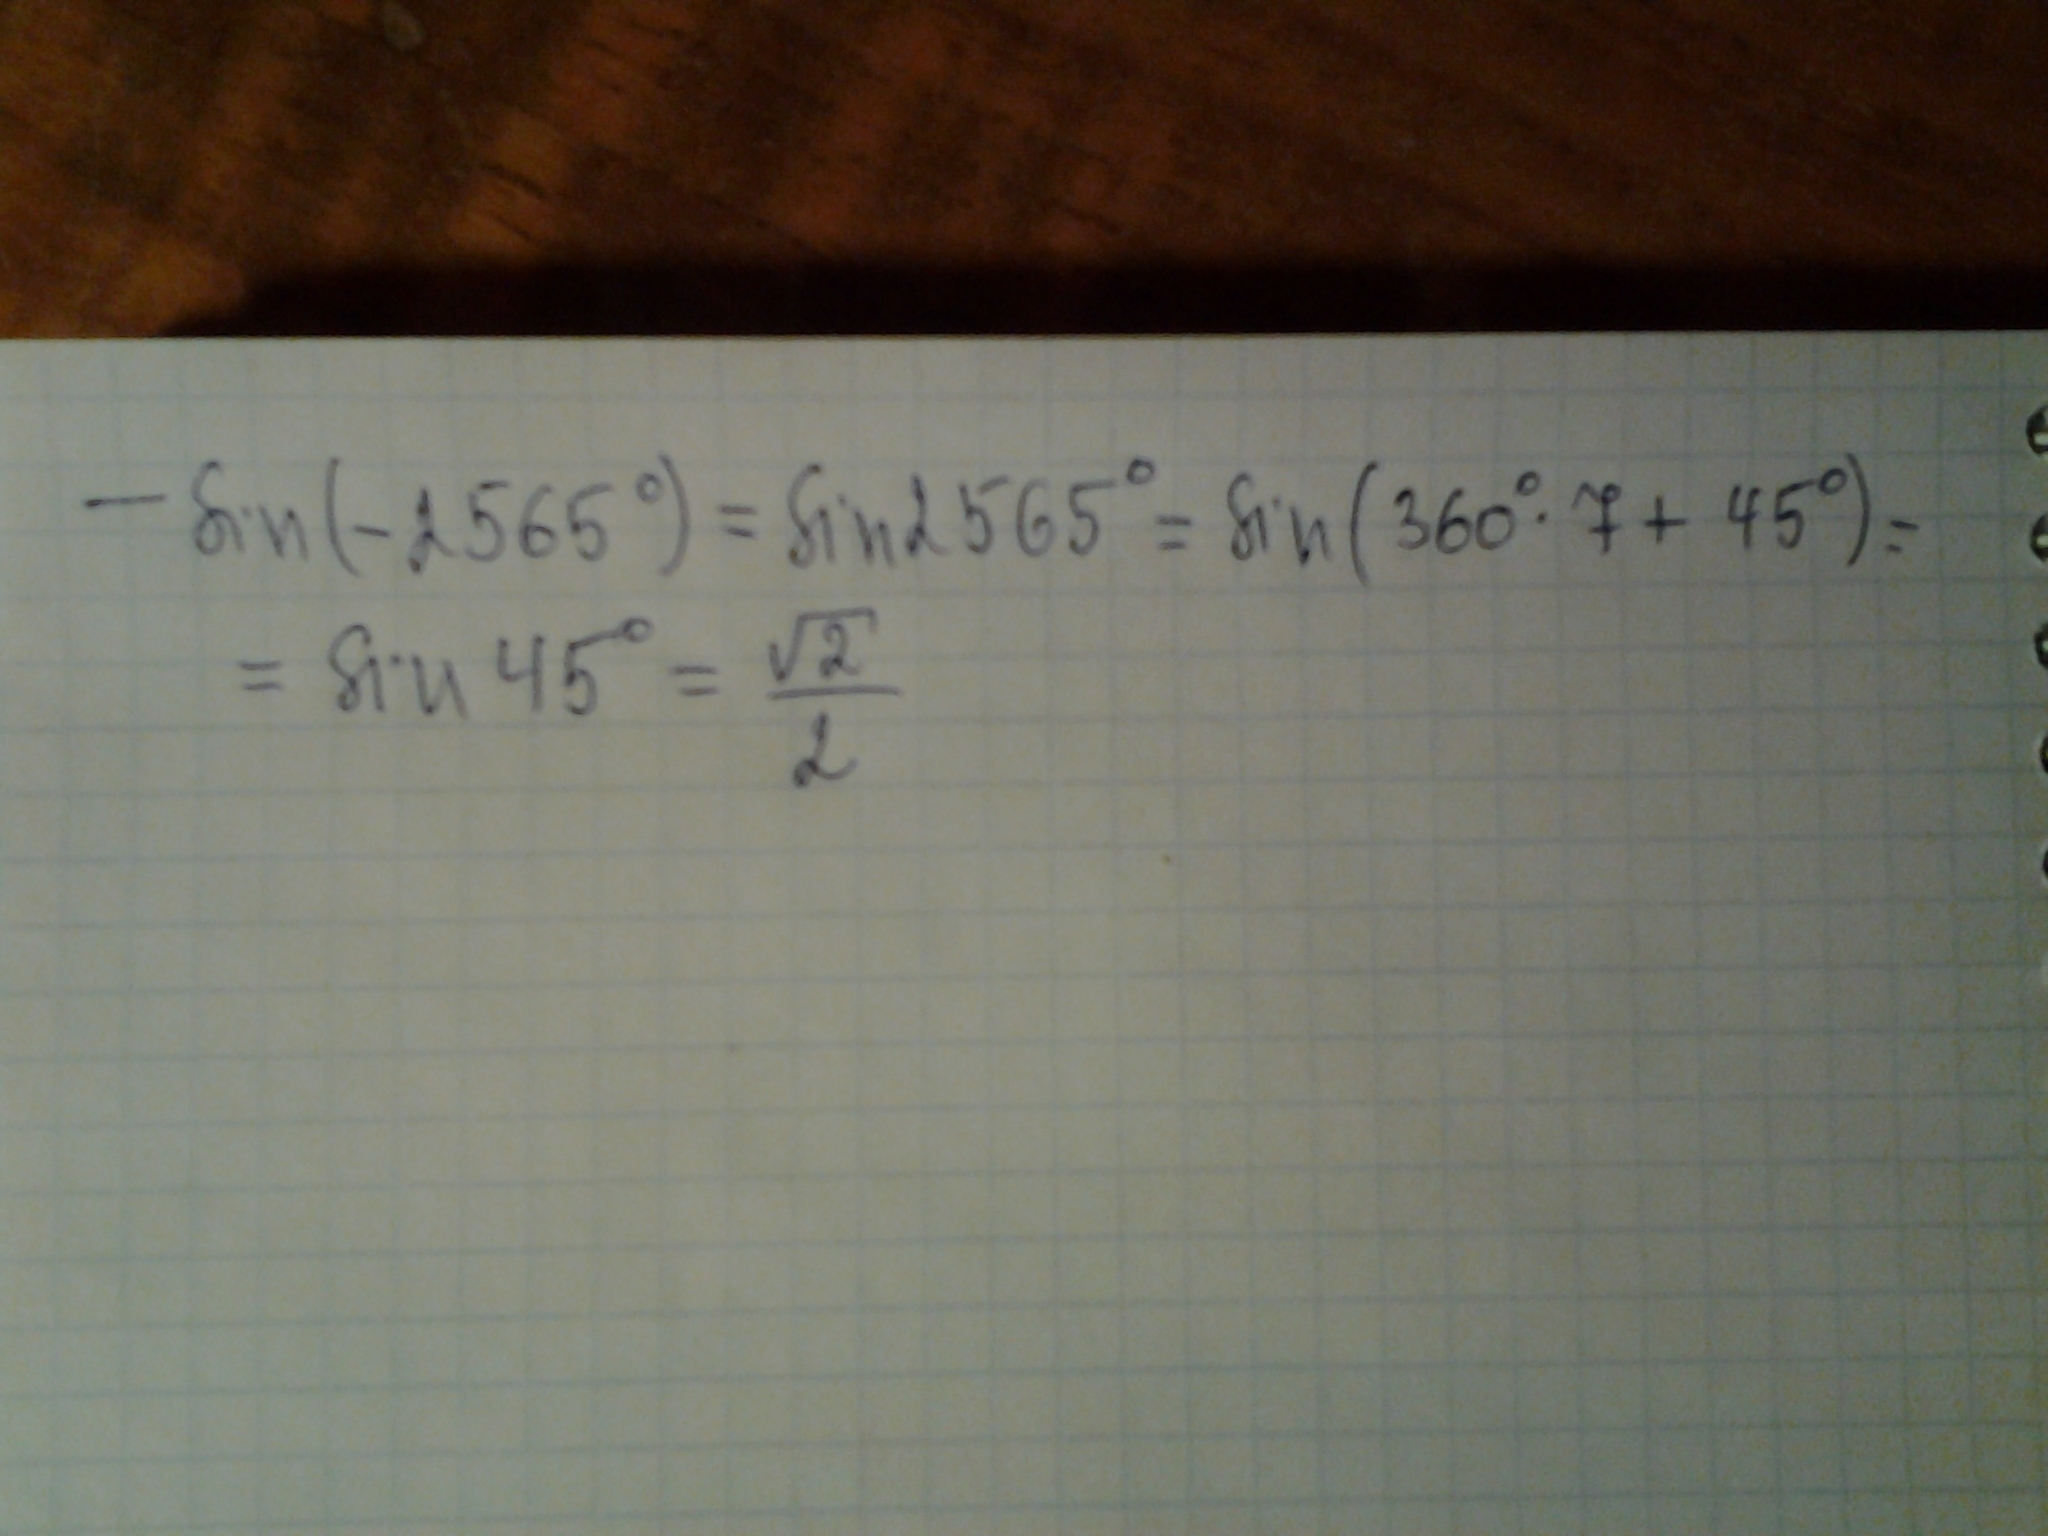 -sin(-2565°) = sin2565° = sin(360°·7 + 45°) =
= sin 45° = √2/2